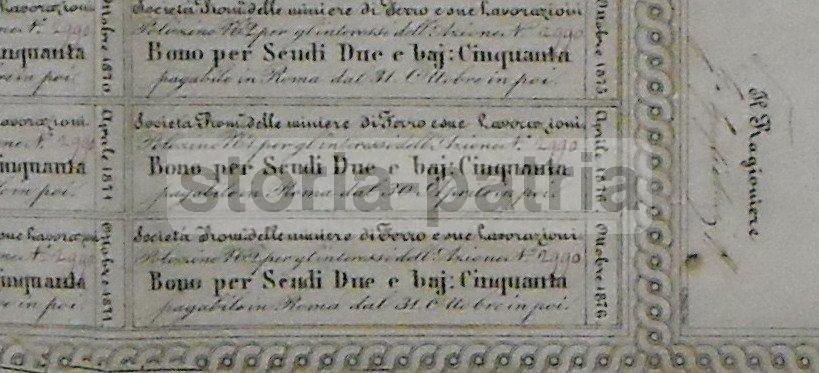 Società Promi delle miniere di Ferro e sue Lavorazioni
per gl'interessi dell'Azione N.° 2990
Bono per Scudi Due e baj: Cinquanta
pagabile in Roma dal 31. Ottobre in poi.
Ottobre 1875
Lavorazioni
2990
inquanta
in poi
Ottobre 1870
Società Promi delle miniere di Ferro e sue Lavorazioni
per gl'interessi dell'Azione N.° 2990
Bono per Scudi Due e baj: Cinquanta
pagabile in Roma dal 30. Aprile in poi.
Aprile 1876
Lavorazioni
2990
inquanta
in poi
Aprile 1871
Società Promi delle miniere di Ferro e sue Lavorazioni
per gl'interessi dell'Azione N.° 2990
Bono per Scudi Due e baj: Cinquanta
pagabile in Roma dal 31. Ottobre in poi.
Ottobre 1876
sue Lavorazioni
2990
inquanta
in poi
Ottobre 1871
Il Ragioniere
storia patria